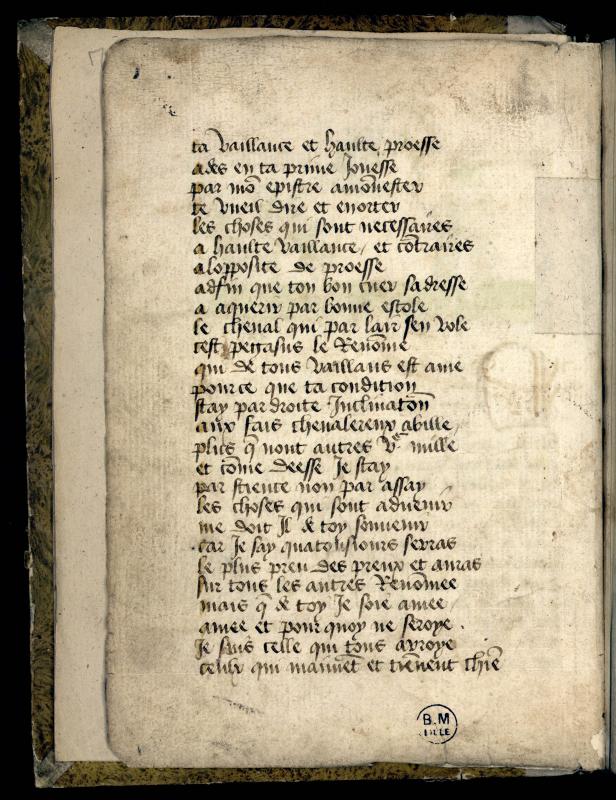 ta vaillance et haulte proesse
ades en ta prime Jonesse
par mō epistre amōnester
te vueil dire et enorter
les choses qui sont necessaires
a haulte vaillance / et cōtraires
alopposite de proesse
adfin que ton bon cuer sadresse
a aquerir par bonne escole
le cheval qui par lair sen vole
cest pegasus le Renōme
qui de tous vaillans est ame
pource que ta condition
scay par droite Inclinatōn
aux fais chevalereux abille
plus q̄ nont autres vᶜ mille
et cōme deesse Je scay
par science non par assay
les choses qui sont advenir
me doit Il de toy souvenir
car Je say qua tousiours seras
le plus preu des preux et auras
sur tous les autres Renōmee
mais q̄ de toy Je soie amee /
amee et pour quoy ne seroye .
Je suis celle qui tous avroye
ceulx qui maimēt et tienent chiē
B.M
LILLE